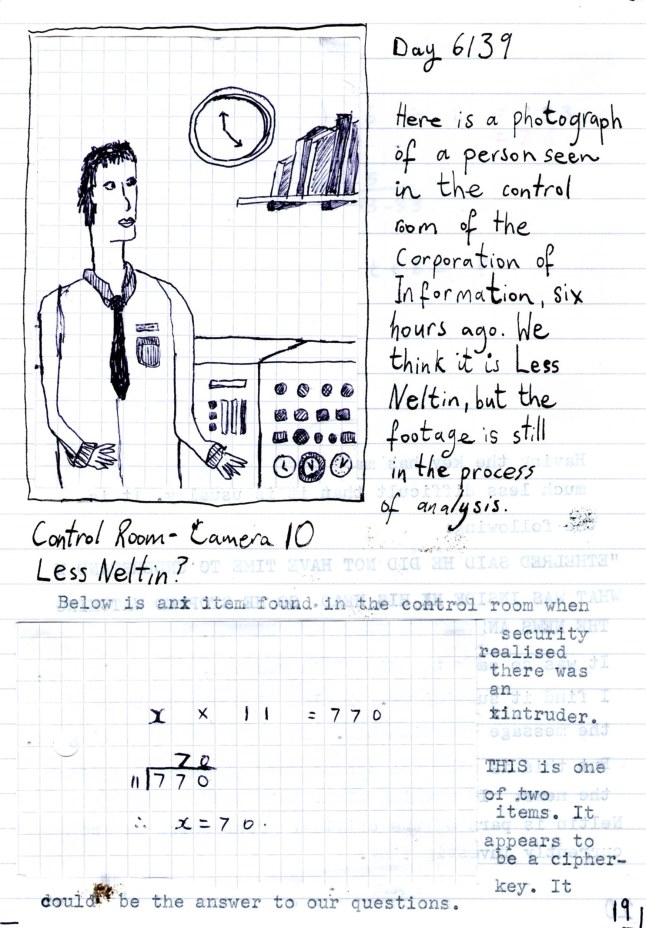 Day 6139
Here is a photograph
of a person seen
in the control
room of the
Corporation of
Information, six
hours ago. We
think it is Less
Neltin, but the
footage is still
in the process
of analysis.
Control Room - Camera 10
Less Neltin?
Below is an item found in the control room when
security
realised
there was
an
intruder.
x × 11 = 770
70
11 770
∴ x = 70.
THIS is one
of two
items. It
appears to
be a cipher-
key. It
could be the answer to our questions.
19